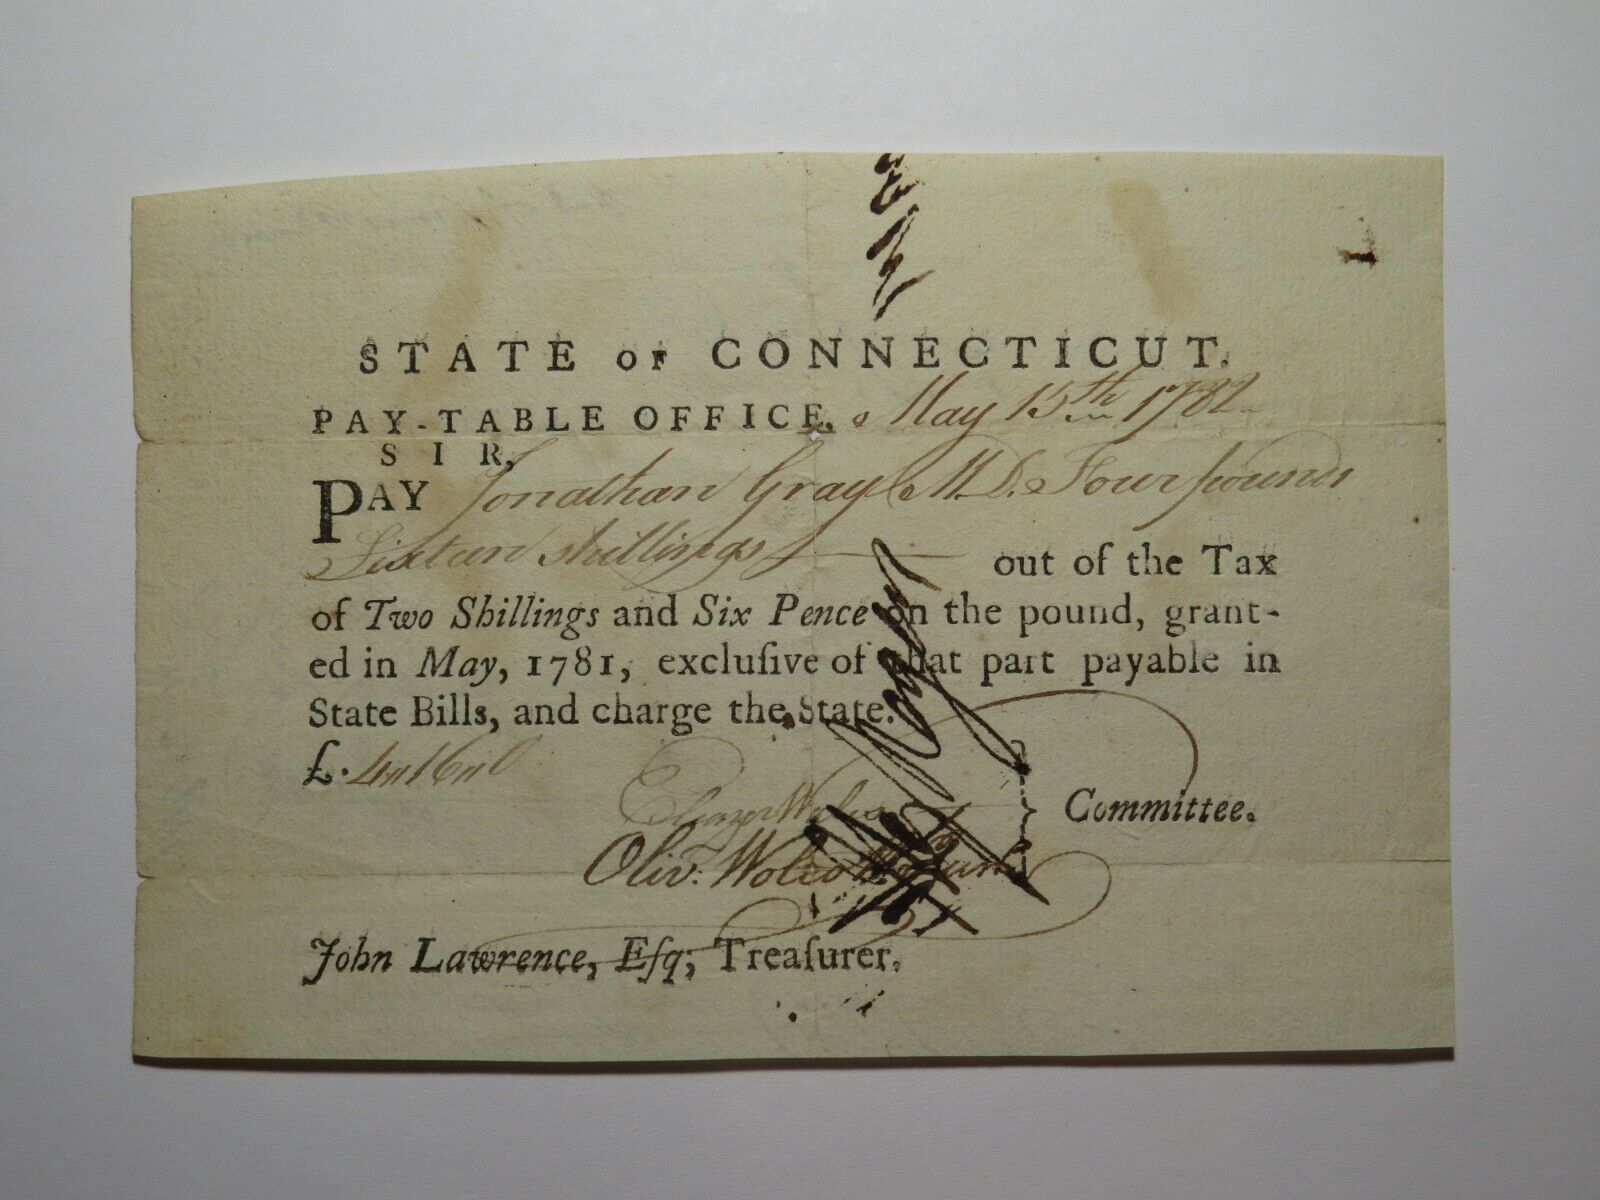 STATE OF CONNECTICUT.
PAY-TABLE OFFICE, May 15th 1782
SIR,
PAY Jonathan Gray M.D. Four pounds
Sixteen shillings out of the Tax
of Two Shillings and Six Pence on the pound, grant-
ed in May, 1781, excluſive of that part payable in
State Bills, and charge the State.
£. 4 16 0
Eleazer Wales
Committee.
Olivr. Wolcott Junr
John Lawrence, Eſq; Treaſurer.